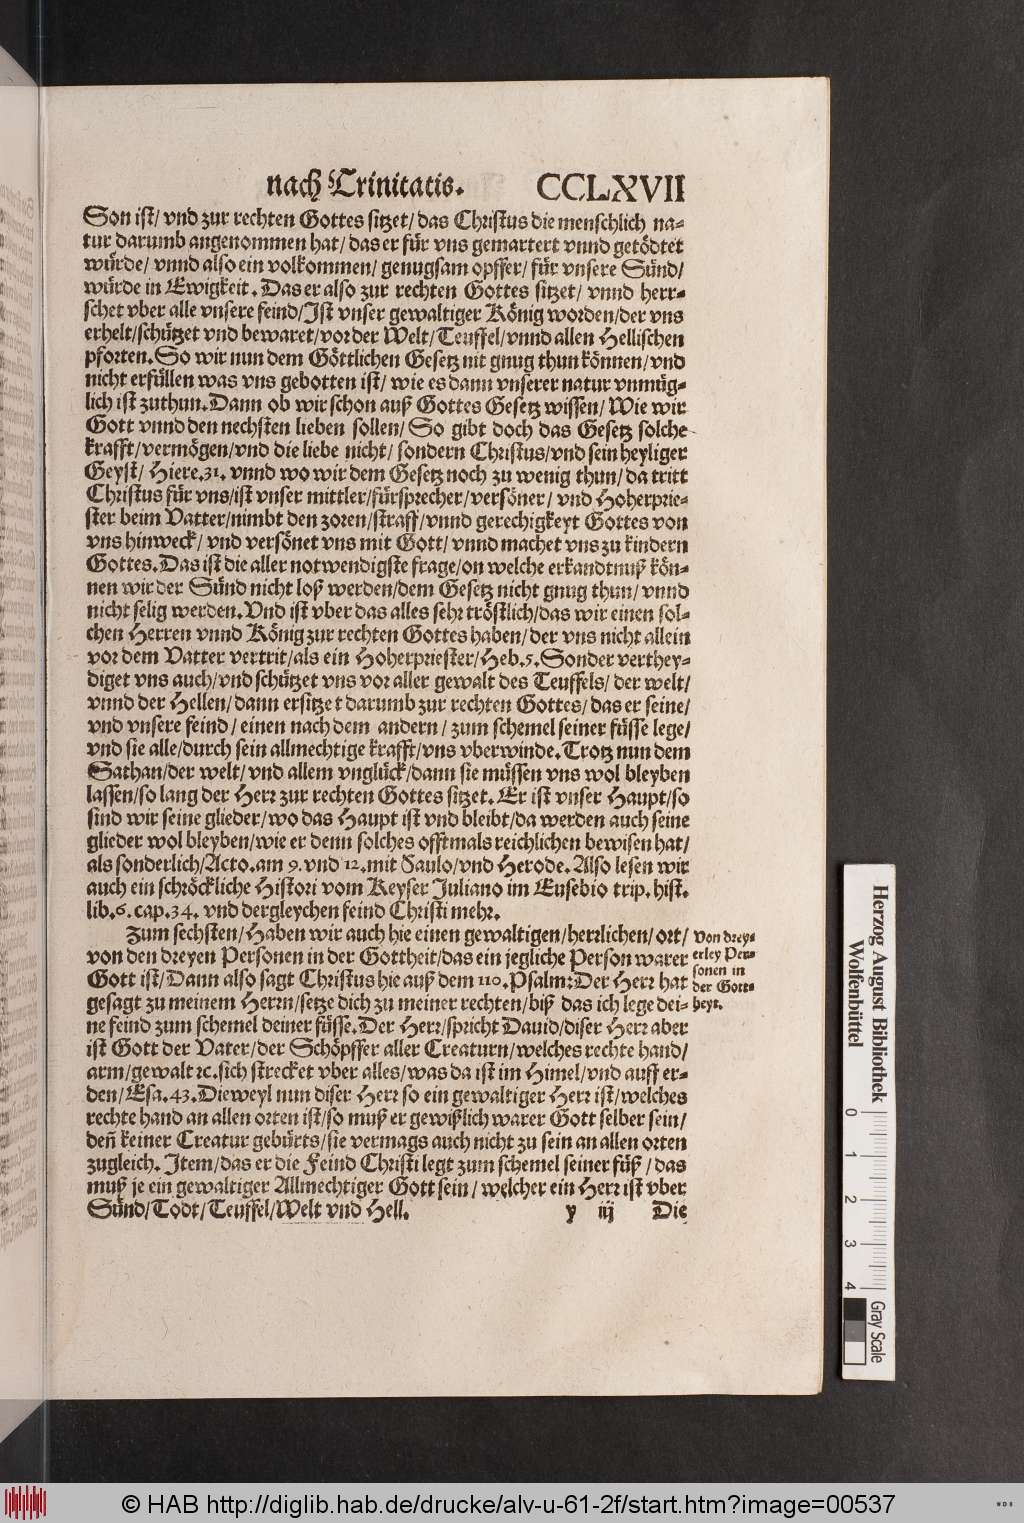 nach Trinitatis. CCLXVII
Son ist/ vnd zur rechten Gottes sitzet/ das Christus die menschlich na-
tur darumb angenommen hat/ das er für vns gemartert vnnd getödtet
würde/ vnnd also ein volkommen/ genugsam opffer/ für vnsere Sünd/
würde in Ewigkeit. Das er also zur rechten Gottes sitzet/ vnnd herr-
schet vber alle vnsere feind/ Ist vnser gewaltiger König worden/ der vns
erhelt/ schützet vnd bewaret/ vor der Welt/ Teuffel/ vnnd allen Hellischen
pforten. So wir nun dem Göttlichen Gesetz nit gnug thun können/ vnd
nicht erfüllen was vns gebotten ist/ wie es dann vnserer natur vnmüg-
lich ist zuthun. Dann ob wir schon auß Gottes Gesetz wissen/ Wie wir
Gott vnnd den nechsten lieben sollen/ So gibt doch das Gesetz solche
krafft/ vermögen/ vnd die liebe nicht/ sondern Christus/ vnd sein heyliger
Geyst/ Hiere. 31. vnnd wo wir dem Gesetz noch zu wenig thun/ da tritt
Christus für vns/ ist vnser mittler/ fürsprecher/ versöner/ vnd Hoherprie-
ster beim Vatter/ nimbt den zoren/ straff/ vnnd gerechigkeyt Gottes von
vns hinweck/ vnd versönet vns mit Gott/ vnnd machet vns zu kindern
Gottes. Das ist die aller notwendigste frage/ on welche erkandtnuß kön-
nen wir der Sünd nicht loß werden/ dem Gesetz nicht gnug thun/ vnnd
nicht selig werden. Vnd ist vber das alles sehr tröstlich/ das wir einen sol-
chen Herren vnnd König zur rechten Gottes haben/ der vns nicht allein
vor dem Vatter vertrit/ als ein Hoherpriester/ Heb. 5. Sonder verthey-
diget vns auch/ vnd schützet vns vor aller gewalt des Teuffels/ der welt/
vnnd der Hellen/ dann er sitzet darumb zur rechten Gottes/ das er seine/
vnd vnsere feind/ einen nach dem andern/ zum schemel seiner füsse lege/
vnd sie alle/ durch sein allmechtige krafft/ vns vberwinde. Trotz nun dem
Sathan/ der welt/ vnd allem vnglück/ dann sie müssen vns wol bleyben
lassen/ so lang der Herr zur rechten Gottes sitzet. Er ist vnser Haupt/ so
sind wir seine glieder/ wo das Haupt ist vnd bleibt/ da werden auch seine
glieder wol bleyben/ wie er denn solches offtmals reichlichen bewisen hat/
als sonderlich/ Acto. am 9. vnd 12. mit Saulo/ vnd Herode. Also lesen wir
auch ein schröckliche Histori vom Keyser Juliano im Eusebio trip. hist.
lib. 6. cap. 34. vnd dergleychen feind Christi mehr.
Zum sechsten/ Haben wir auch hie einen gewaltigen/ herrlichen/ ort/
von den dreyen Personen in der Gottheit/ das ein jegliche Person warer
Gott ist/ Dann also sagt Christus hie auß dem 110. Psalm: Der Herr hat
gesagt zu meinem Herrn/ setze dich zu meiner rechten/ biß das ich lege dei-
ne feind zum schemel deiner füsse. Der Herr/ spricht Dauid/ diser Herr aber
ist Gott der Vater/ der Schöpffer aller Creaturn/ welches rechte hand/
arm/ gewalt ꝛc. sich strecket vber alles/ was da ist im Himel/ vnd auff er-
den/ Esa. 43. Dieweyl nun diser Herr so ein gewaltiger Herr ist/ welches
rechte hand an allen orten ist/ so muß er gewißlich warer Gott selber sein/
deñ keiner Creatur gebürts/ sie vermags auch nicht zu sein an allen orten
zugleich. Item/ das er die Feind Christi legt zum schemel seiner füß/ das
muß je ein gewaltiger Allmechtiger Gott sein/ welcher ein Herr ist vber
Sünd/ Todt/ Teuffel/ Welt vnd Hell.
y iij Die
Von drey-
erley Per-
sonen in
der Gott-
heyt.
Herzog August Bibliothek
Wolfenbüttel
0 1 2 3 4
Gray Scale
© HAB http://diglib.hab.de/drucke/alv-u-61-2f/start.htm?image=00537